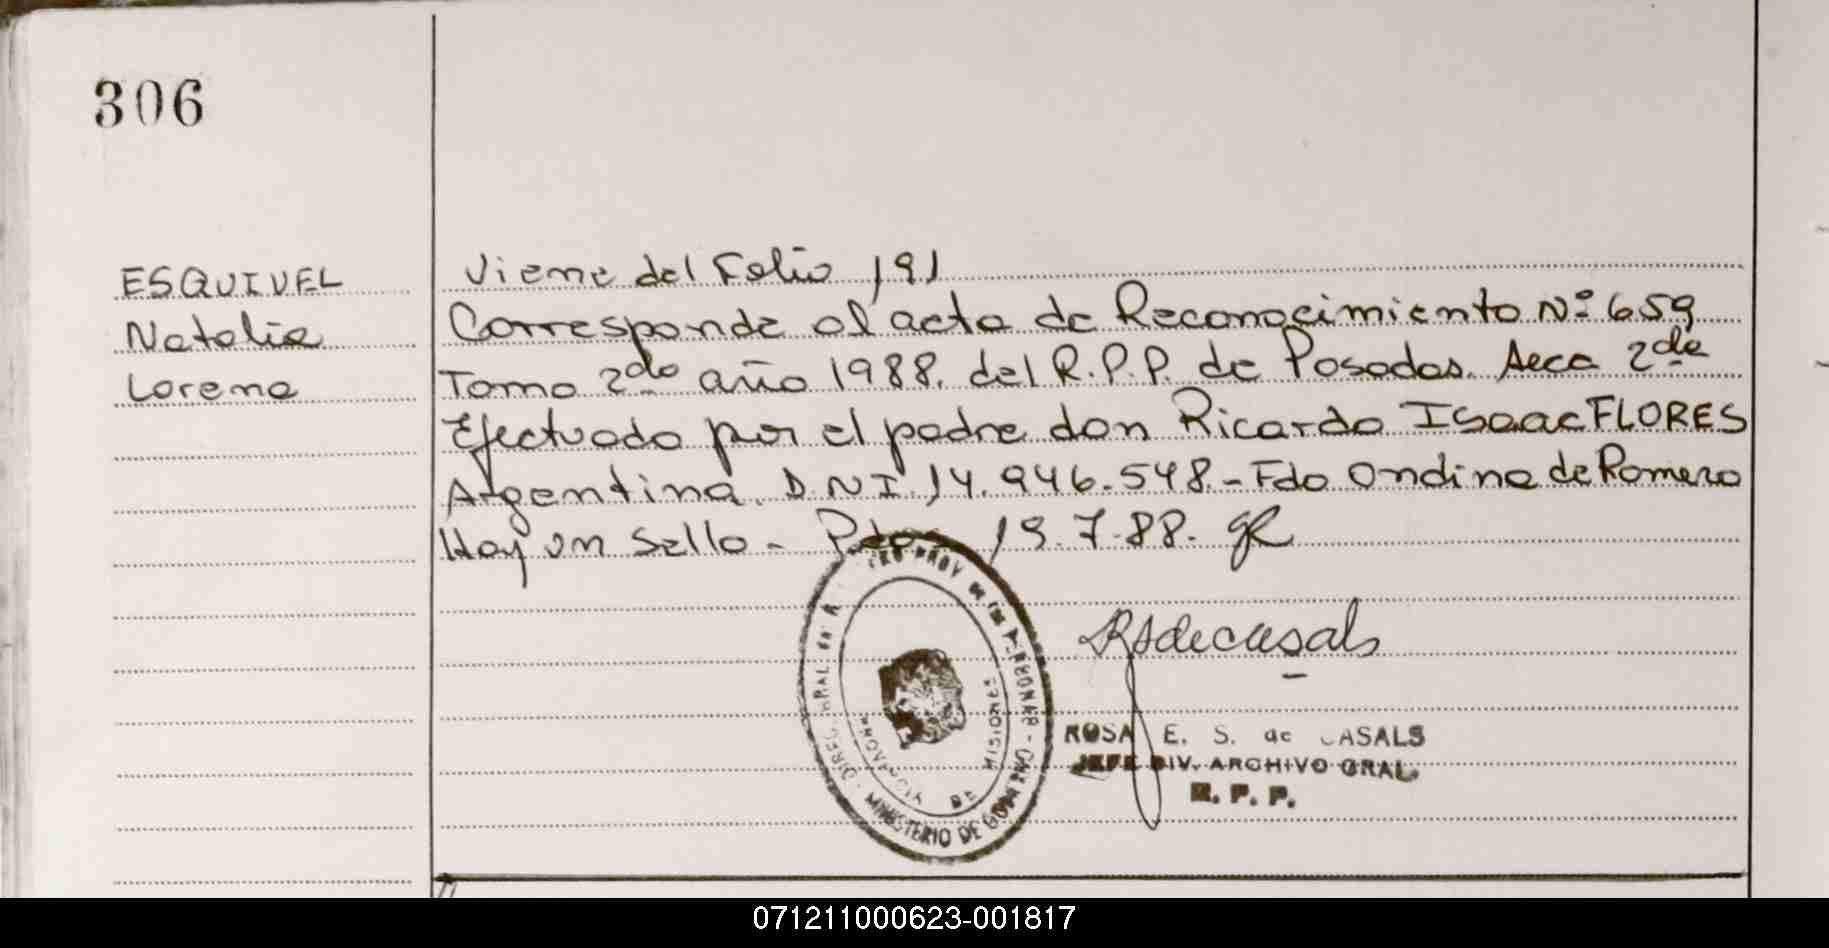 306
ESQUIVEL
Natalia
Lorena
Viene del Folio 191
Corresponde al acta de Reconocimiento Nº 659
Tomo 2do año 1988. del R.P.P. de Posadas. Secc 2da
Efectuado por el padre don Ricardo Isaac FLORES
Argentina. D.N.I. 14.946.548.- Fdo Ondina de Romero
Hay un sello.- Pdas 19.7.88.
RSdecasals
ROSA E. S. de CASALS
JEFE DIV. ARCHIVO GRAL.
R. P. P.
PROV DE LAS PERSONAS
MINISTERIO DE GOBIERNO
DE MISIONES
071211000623-001817